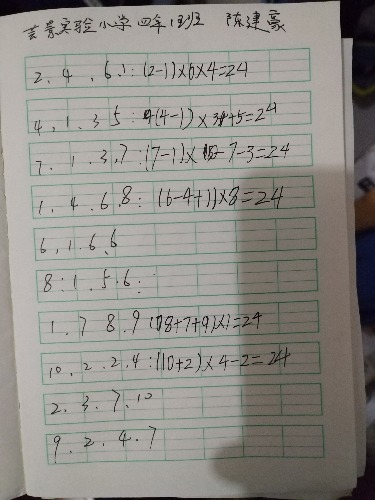 芸景实验小学四年1班 陈建豪
2. 4. 6. 1: (2-1)×6×4=24
4. 1. 3 5: (4-1)×3+5=24
7. 1. 3. 7: (7-1)× -7-3=24
1. 4. 6. 8: (6-4+1)×8=24
6. 1. 6. 6
8. 1. 5. 6:
1. 7 8. 9 (8+7+9)×1=24
10. 2. 2. 4: (10+2)×4-2=24
2. 3. 7. 10
9. 2. 4. 7